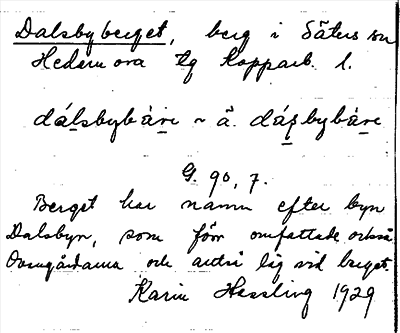 Dalsbyberget, berg i Säters sn
Hedemora tg Kopparb. l.
dálsbybàre ~ ä. dáʂbybàre
G. 90, 7.
Berget har namn efter byn
Dalsbyn, som förr omfattade också
Ovangårdarna och antri låg vid berget.
Karin Hessling 1929